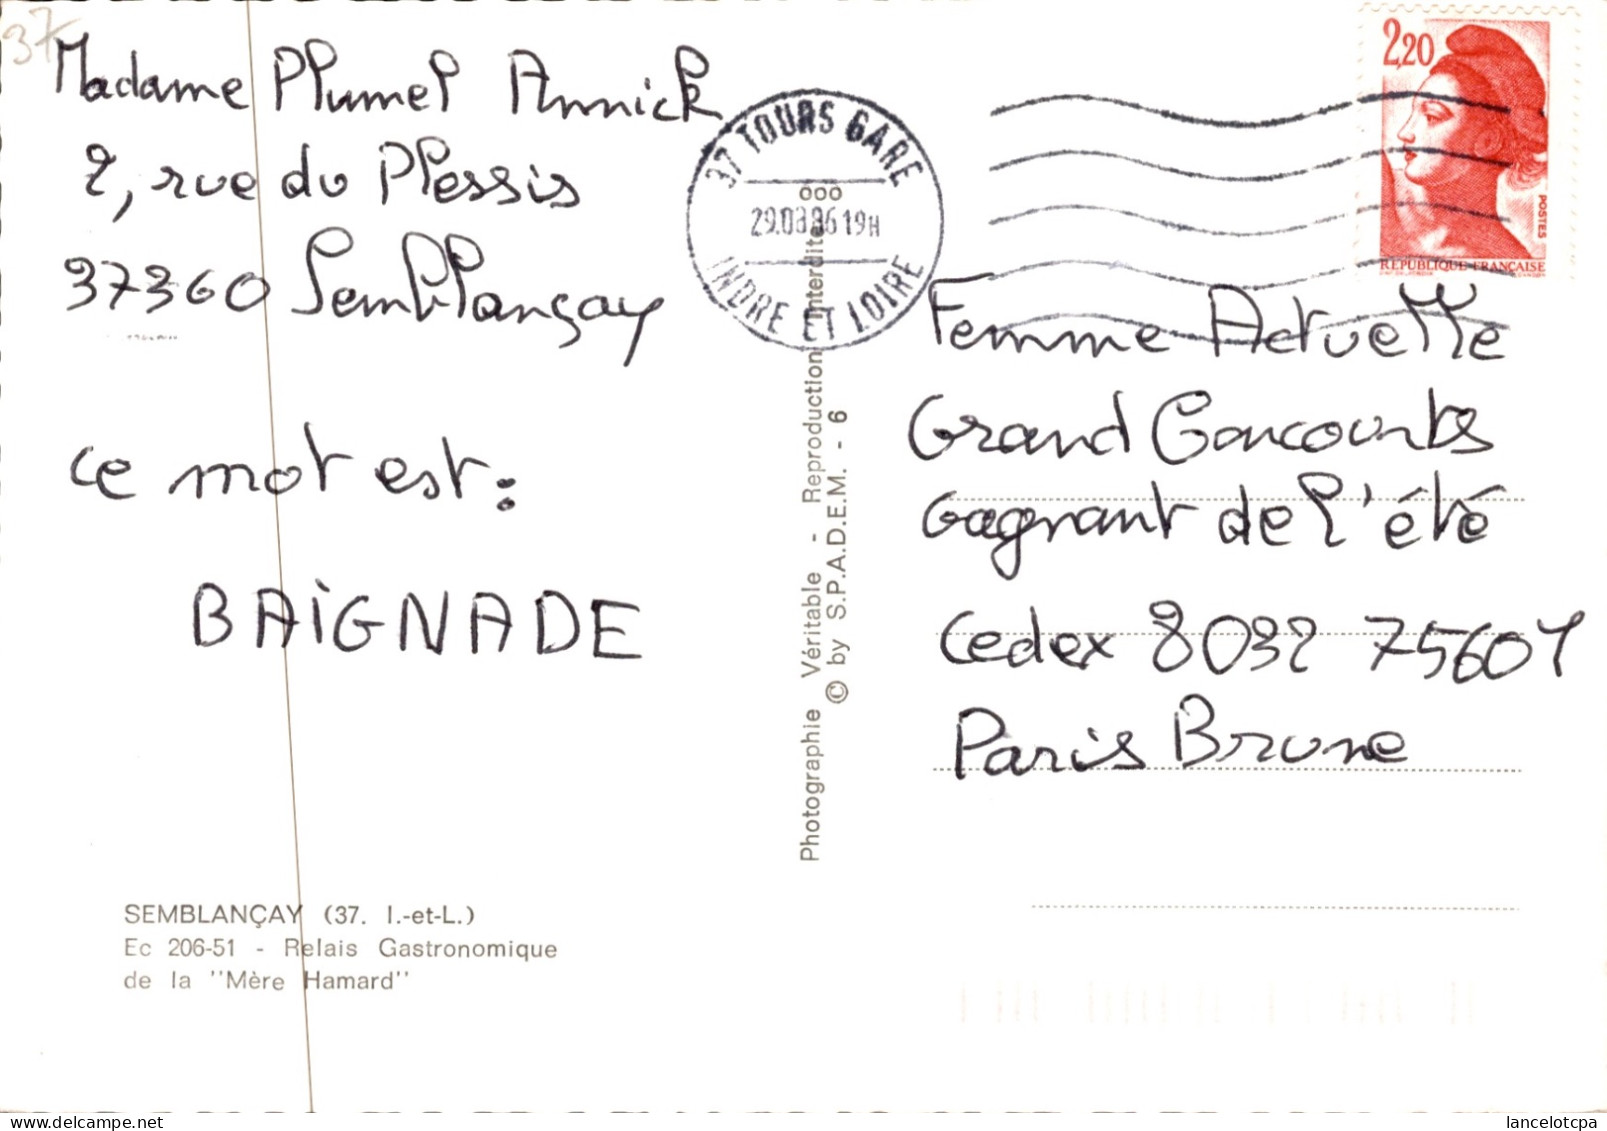 37
Madame Plumel Annick
2, rue du Plessis
37360 Semblançay
ce mot est :
BAiGNADE
SEMBLANÇAY (37. I.-et-L.)
Ec 206-51 - Relais Gastronomique
de la "Mère Hamard"
Photographie Véritable - Reproduction Interdite
© by S.P.A.D.E.M. - 6
37 TOURS GARE
000
29.08.86 19H
INDRE ET LOIRE
2,20
POSTES
RÉPUBLIQUE FRANÇAISE
Femme Actuelle
Grand Concours
Gagnant de l'été
Cedex 8032 75607
Paris Brune
lancelotcpa